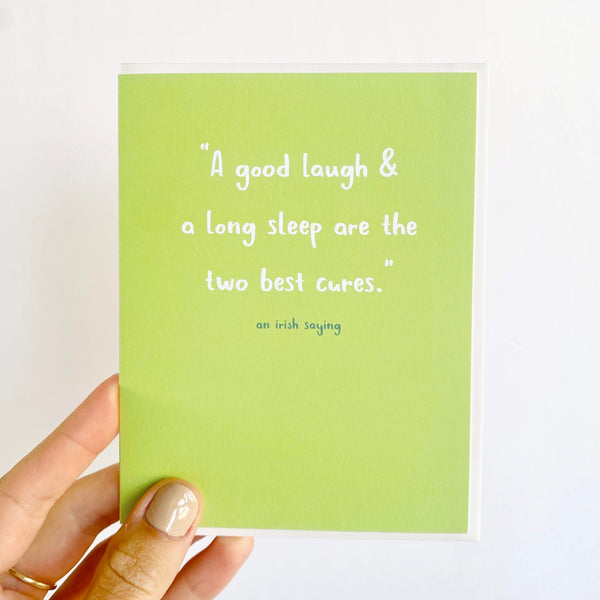 "A good laugh &
a long sleep are the
two best cures."
an irish saying